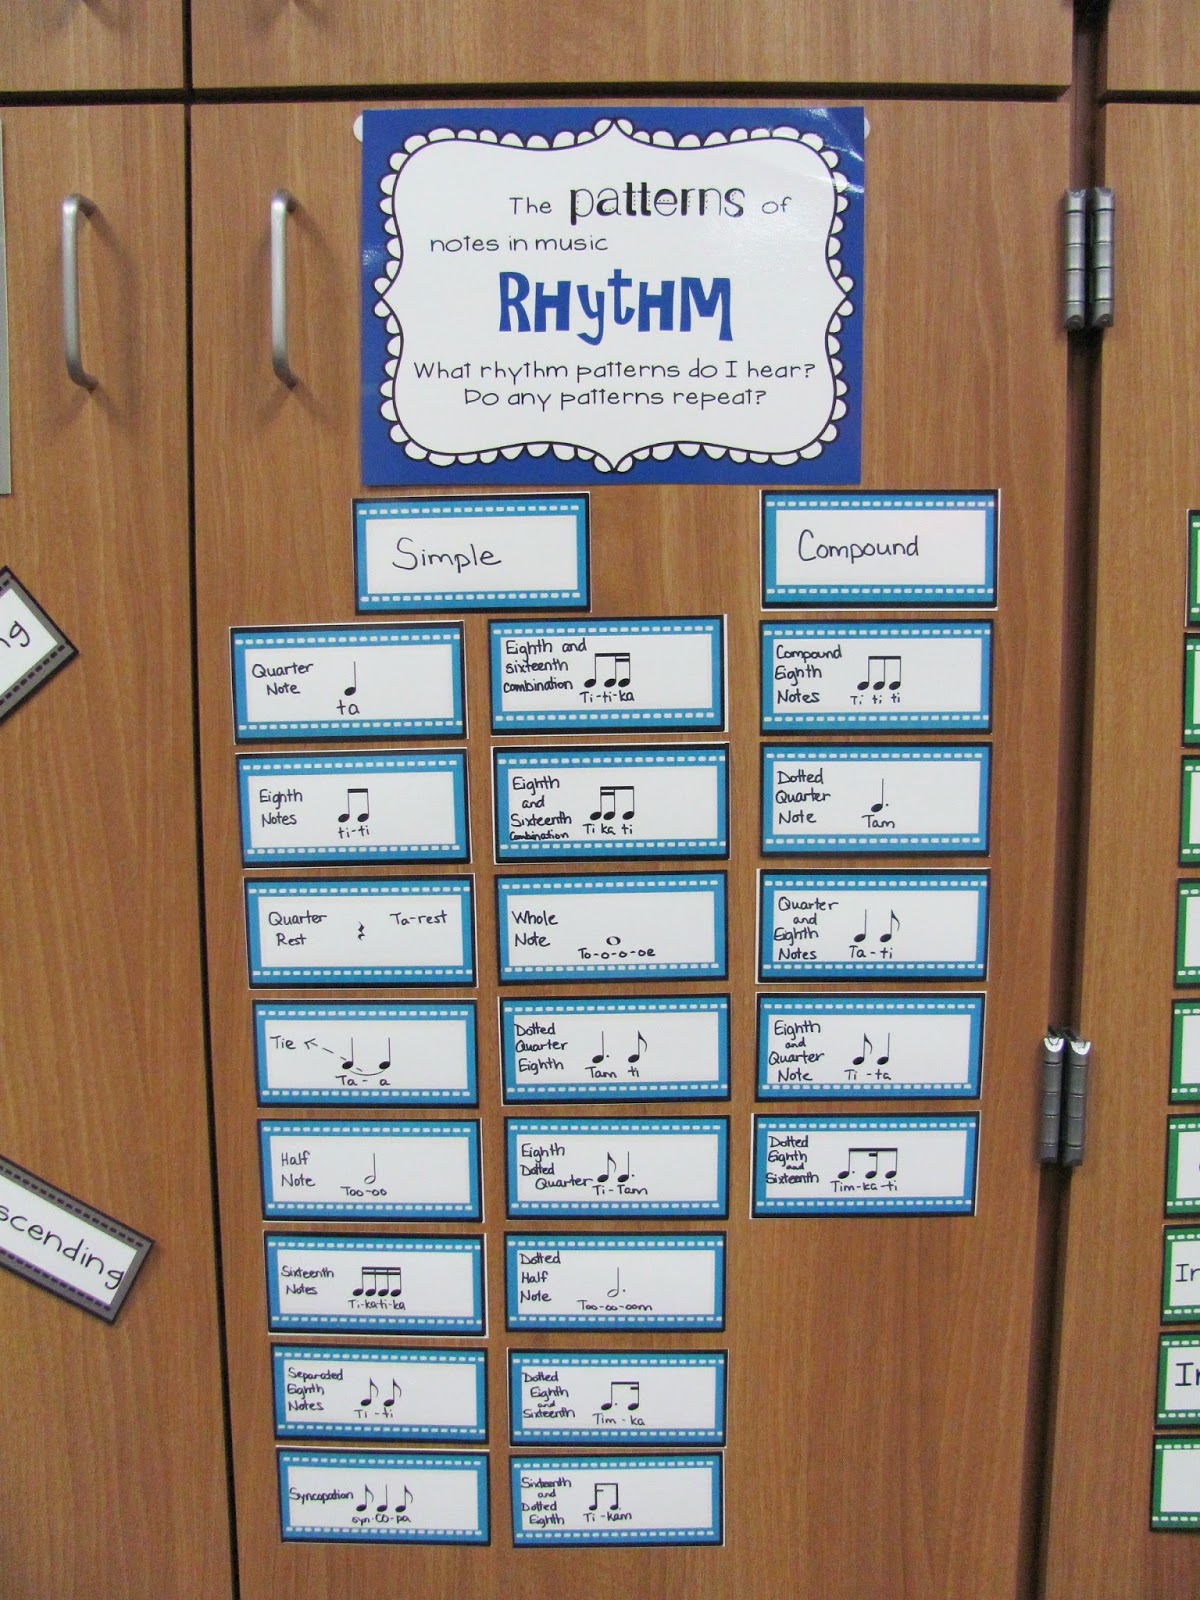 The patterns of
notes in music
RHytHM
What rhythm patterns do I hear?
Do any patterns repeat?
Simple
Quarter
Note
ta
Eighth
Notes
ti-ti
Quarter
Rest
Ta-rest
Tie
Ta - a
Half
Note
Too-oo
Sixteenth
Notes
Ti-ka-ti-ka
Separated
Eighth
Notes
Ti - ti
Syncopation
syn-CO-pa
Eighth and
sixteenth
combination
Ti-ti-ka
Eighth
and
Sixteenth
Combination
Ti ka ti
Whole
Note
To-o-o-oe
Dotted
Quarter
Eighth
Tam ti
Eighth
Dotted
Quarter
Ti-Tam
Dotted
Half
Note
Too-oo-oom
Dotted
Eighth
and
Sixteenth
Tim - ka
Sixteenth
and
Dotted
Eighth
Ti - kam
Compound
Compound
Eighth
Notes
Ti ti ti
Dotted
Quarter
Note
Tam
Quarter
and
Eighth
Notes
Ta - ti
Eighth
and
Quarter
Note
Ti - ta
Dotted
Eighth
and
Sixteenth
Tim-ka-ti
ng
scending
In
In